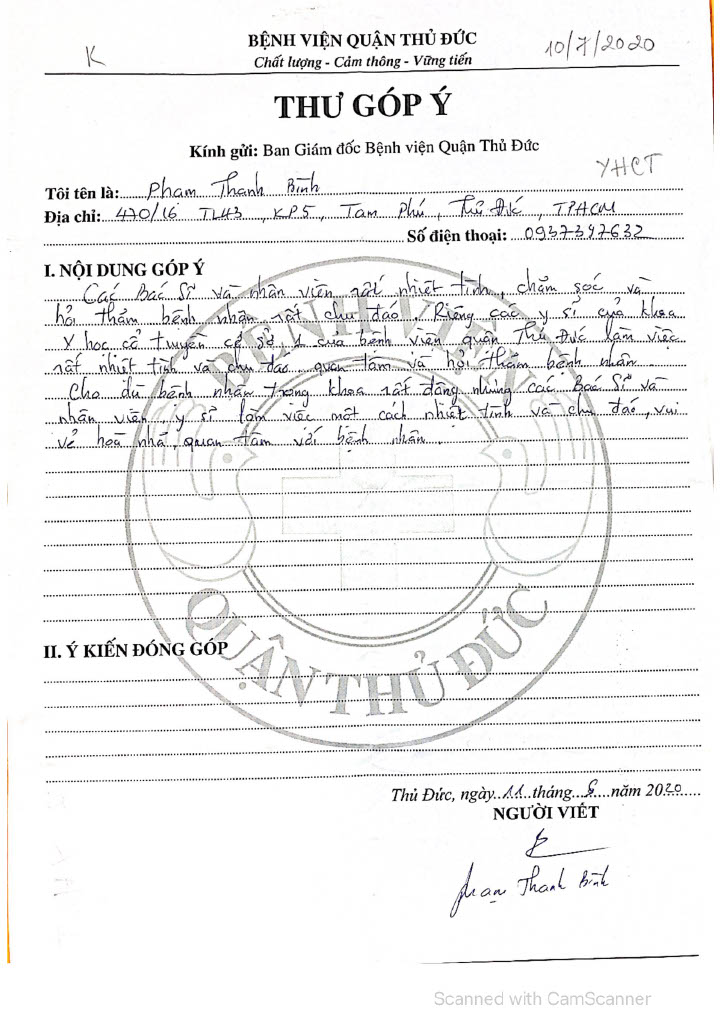 K
BỆNH VIỆN QUẬN THỦ ĐỨC
10/7/2020
Chất lượng - Cảm thông - Vững tiến
THƯ GÓP Ý
Kính gửi: Ban Giám đốc Bệnh viện Quận Thủ Đức
YHCT
Tôi tên là: Phạm Thanh Bình
Địa chỉ: 470/16 TL43, KP5, Tam Phú, Thủ Đức, TPHCM
Số điện thoại: 0937397632
I. NỘI DUNG GÓP Ý
Các Bác Sĩ và nhân viên rất nhiệt tình, chăm sóc và
hỏi thăm bệnh nhân rất chu đáo. Riêng các y sĩ của khoa
Y học cổ truyền cơ sở 1 của bệnh viện quận Thủ Đức làm việc
rất nhiệt tình và chu đáo quan tâm và hỏi thăm bệnh nhân.
Cho dù bệnh nhân trong khoa rất đông nhưng các Bác Sĩ và
nhân viên, y sĩ làm việc một cách nhiệt tình và chu đáo, vui
vẻ hoà nhã, quan tâm với bệnh nhân.
BỆNH VIỆN
QUẬN THỦ ĐỨC
II. Ý KIẾN ĐÓNG GÓP
Thủ Đức, ngày 11 tháng năm 2020
NGƯỜI VIẾT
Phạm Thanh Bình
Scanned with CamScanner